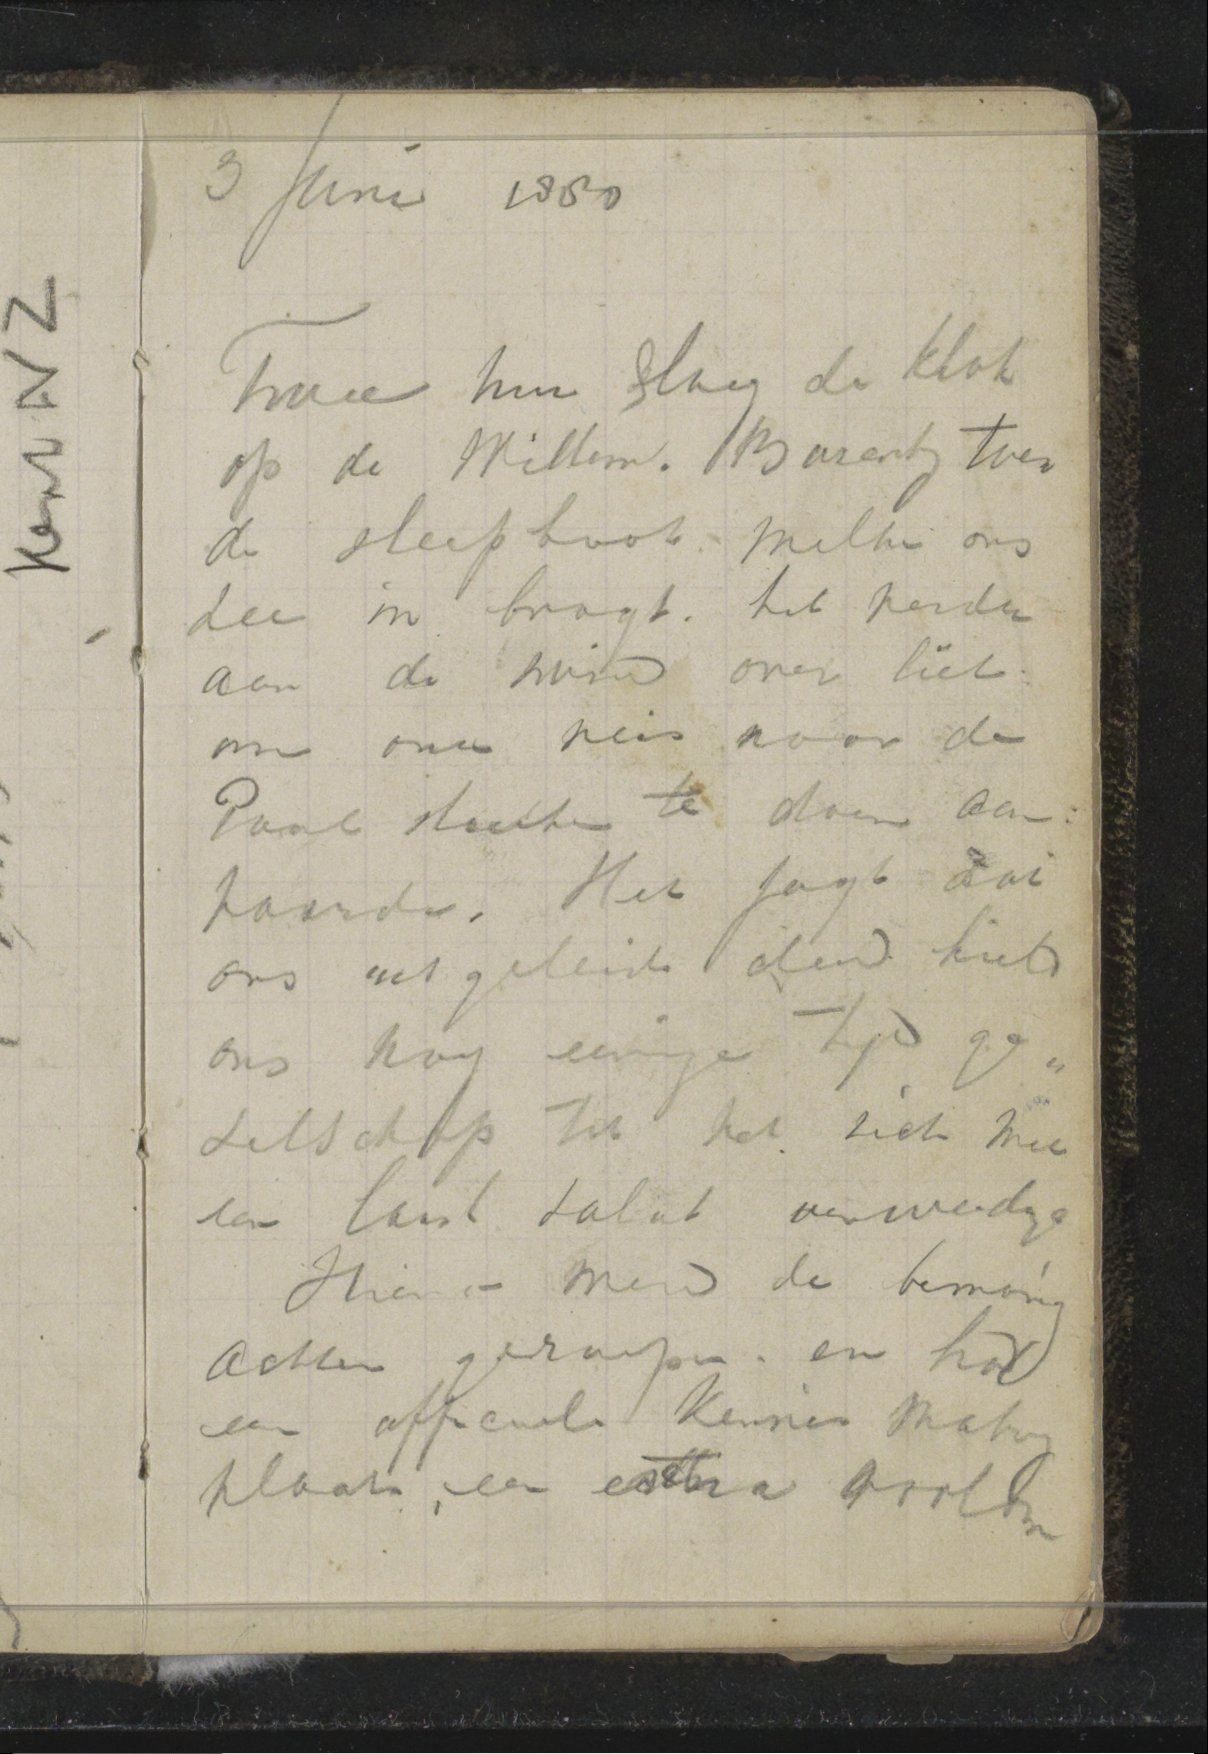 3 Juni 1880
Twee uur sloeg de klok
op de Willem. Barentz toen
de sleepboot welke ons
zee in bragt. het verder
aan de wind over liet.
om onze reis naar de
Pool te doen aan:
vaarde. Het jagt dat
ons uitgeleide deed hield
ons nog eenige tijd ge„
zelschap tot het zich met
een laast saluut verweidge
Hierna werd de beman̄g
achter geroepen. en had
een officieele Kennis making
plaats, een extra oorlam